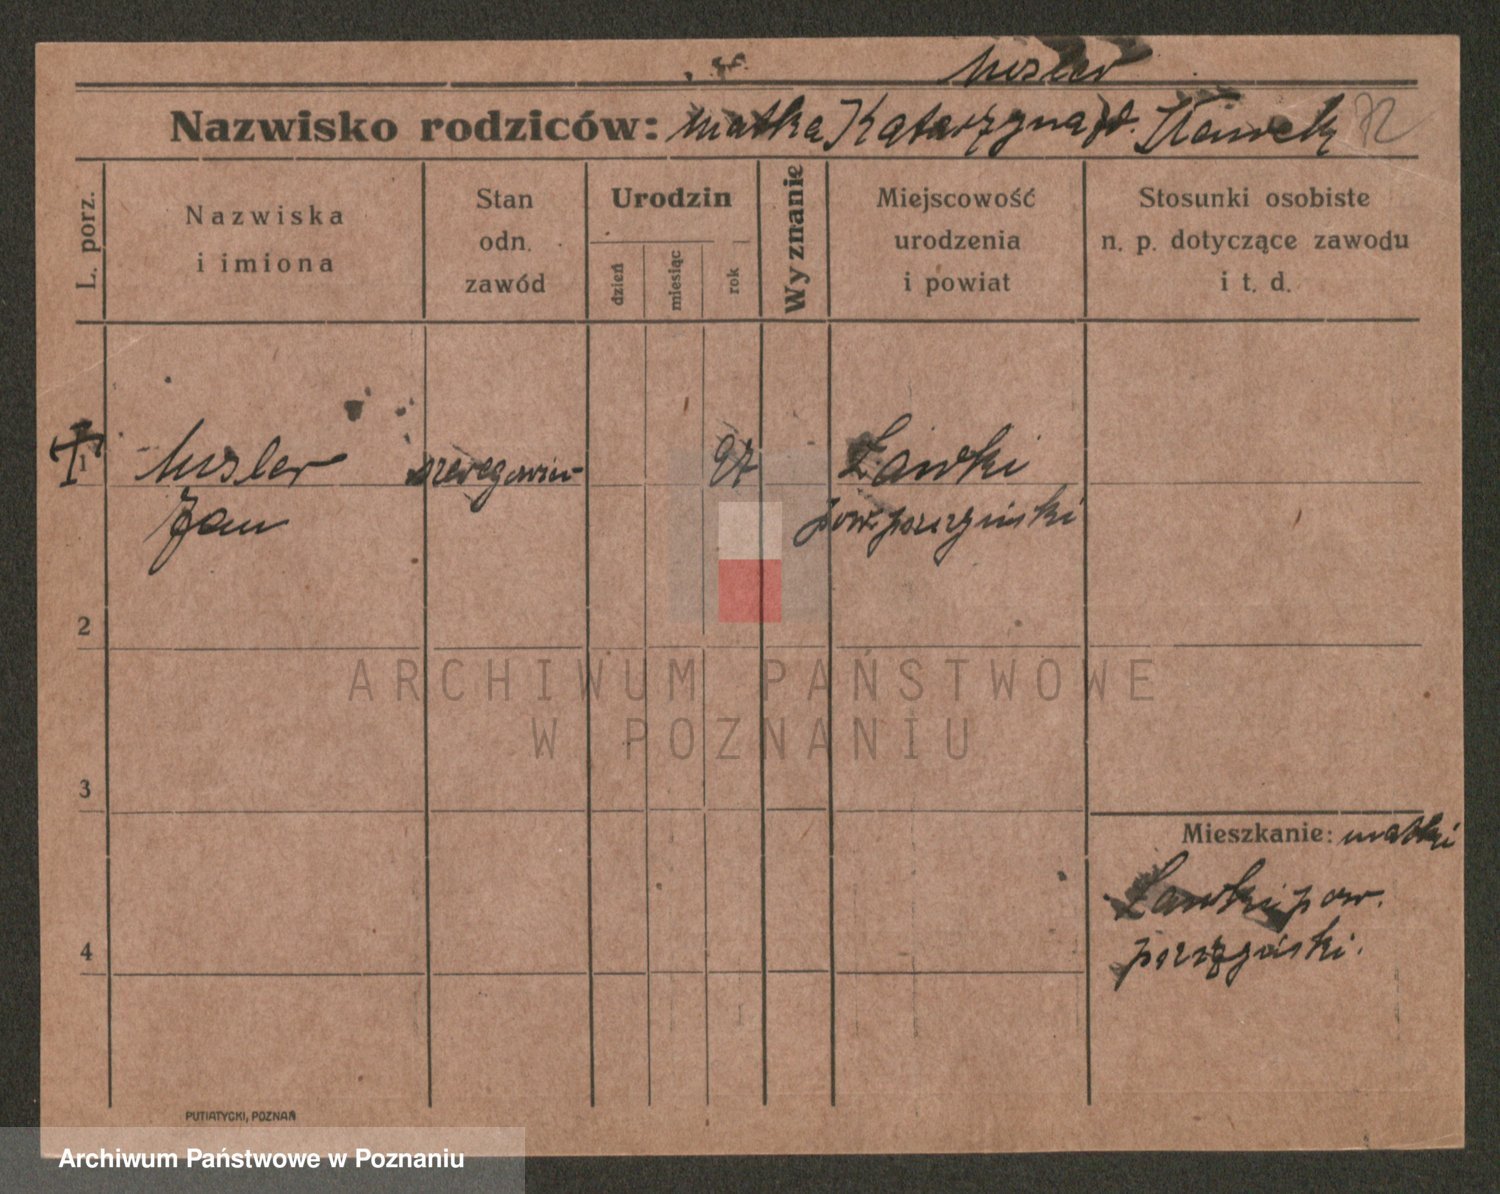 Misler
Nazwisko rodziców: matka Katarzyna d. Sławek 72
L. porz.
Nazwiska
i imiona
Stan
odn.
zawód
Urodzin
dzień
miesiąc
rok
Wyznanie
Miejscowość
urodzenia
i powiat
Stosunki osobiste
n. p. dotyczące zawodu
i t. d.
1 Misler szeregowiec 97 Ławki
Jan
2
3
Mieszkanie: matki
Ławki pow.
4
PUTIATYCKI, POZNAŃ
ARCHIWUM PAŃSTWOWE
W POZNANIU
Archiwum Państwowe w Poznaniu